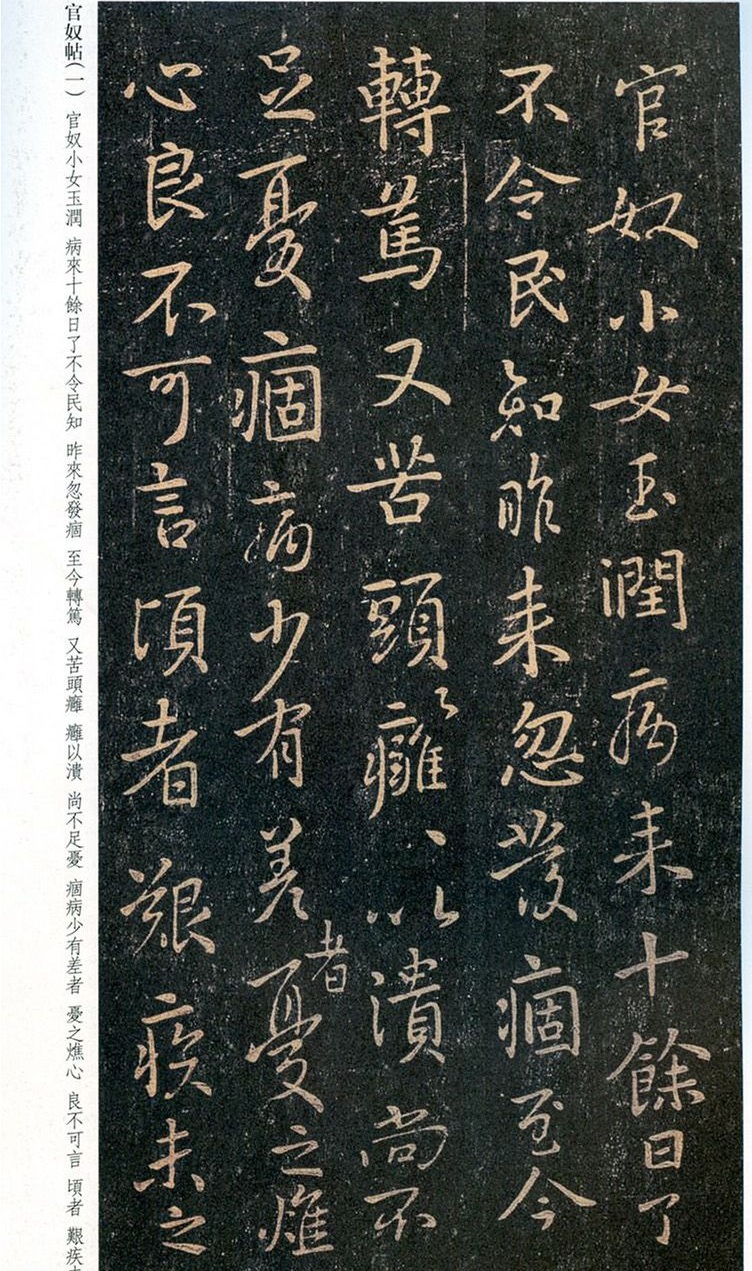 官奴小女玉潤病來十餘日了
不令民知昨來忽發痼至今
轉篤又苦頭癰、以潰尚不
足憂痼病少有差者憂之燋
心良不可言頃者艱疾未之
官奴帖（一） 官奴小女玉潤 病來十餘日了不令民知 昨來忽發痼 至今轉篤 又苦頭癰 癰以潰 尚不足憂 痼病少有差者 憂之燋心 良不可言 頃者 艱疾